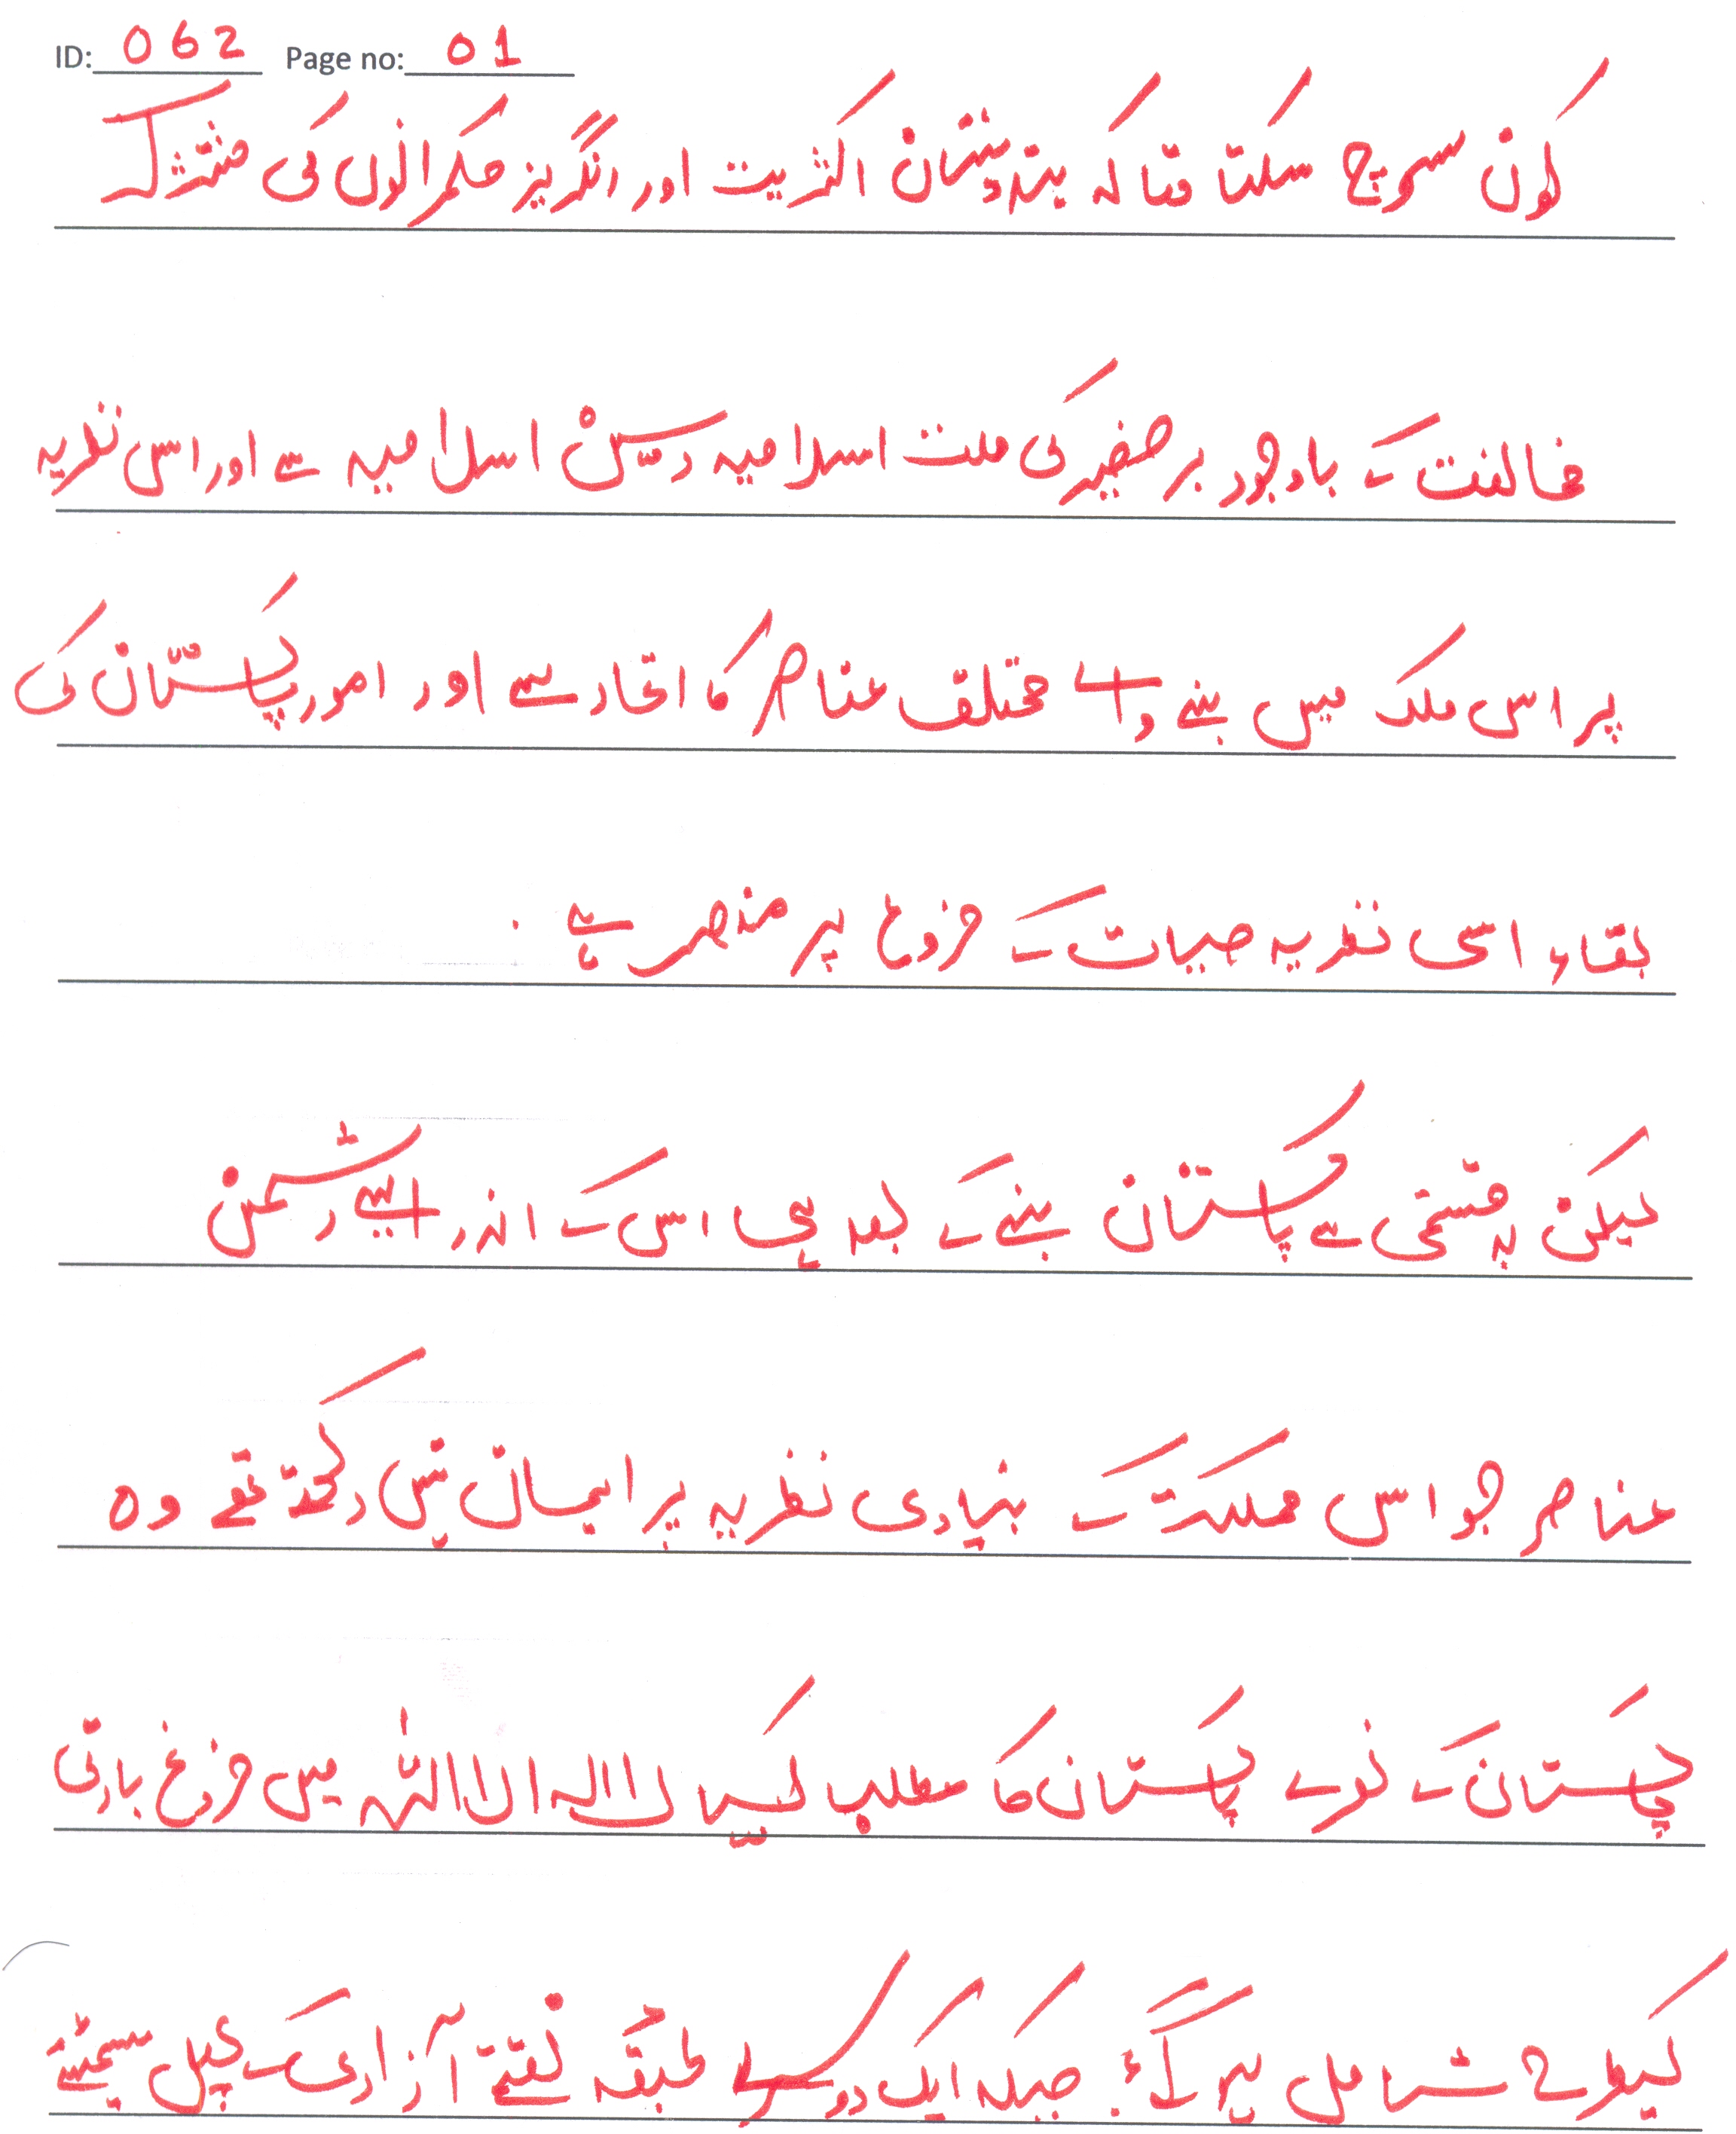 ID: 062 Page no: 01
کون سوچ سکتا تھا کہ ہندوستان اکثریت اور انگریز حکمرانوں کی مشترکہ
مخالفت کے باوجود برصغیر کی ملت اسلامیہ اسلامیہ ہے اور اس نظریہ
پر اس ملک میں بسنے والے مختلف عناصر کا اتحاد ہے اور امور پاکستان کی
بقاء اسی نظریہ حیات کے فروغ پر منحصر ہے .
لیکن بدقسمتی سے پاکستان بننے کے بعد ہی اس کے اندر ایسے دشمن
عناصر جو اس مملکت کے بنیادی نظریہ پر ایمان نہیں رکھتے تھے وہ
پاکستان کے نعرے پاکستان کا مطلب کیا لا الہ الا اللہ میں فروغ
کیطرح شامل ہو گئے جبکہ ایک دوسرے طبقہ نے آزادی کے پھل سمیٹنے